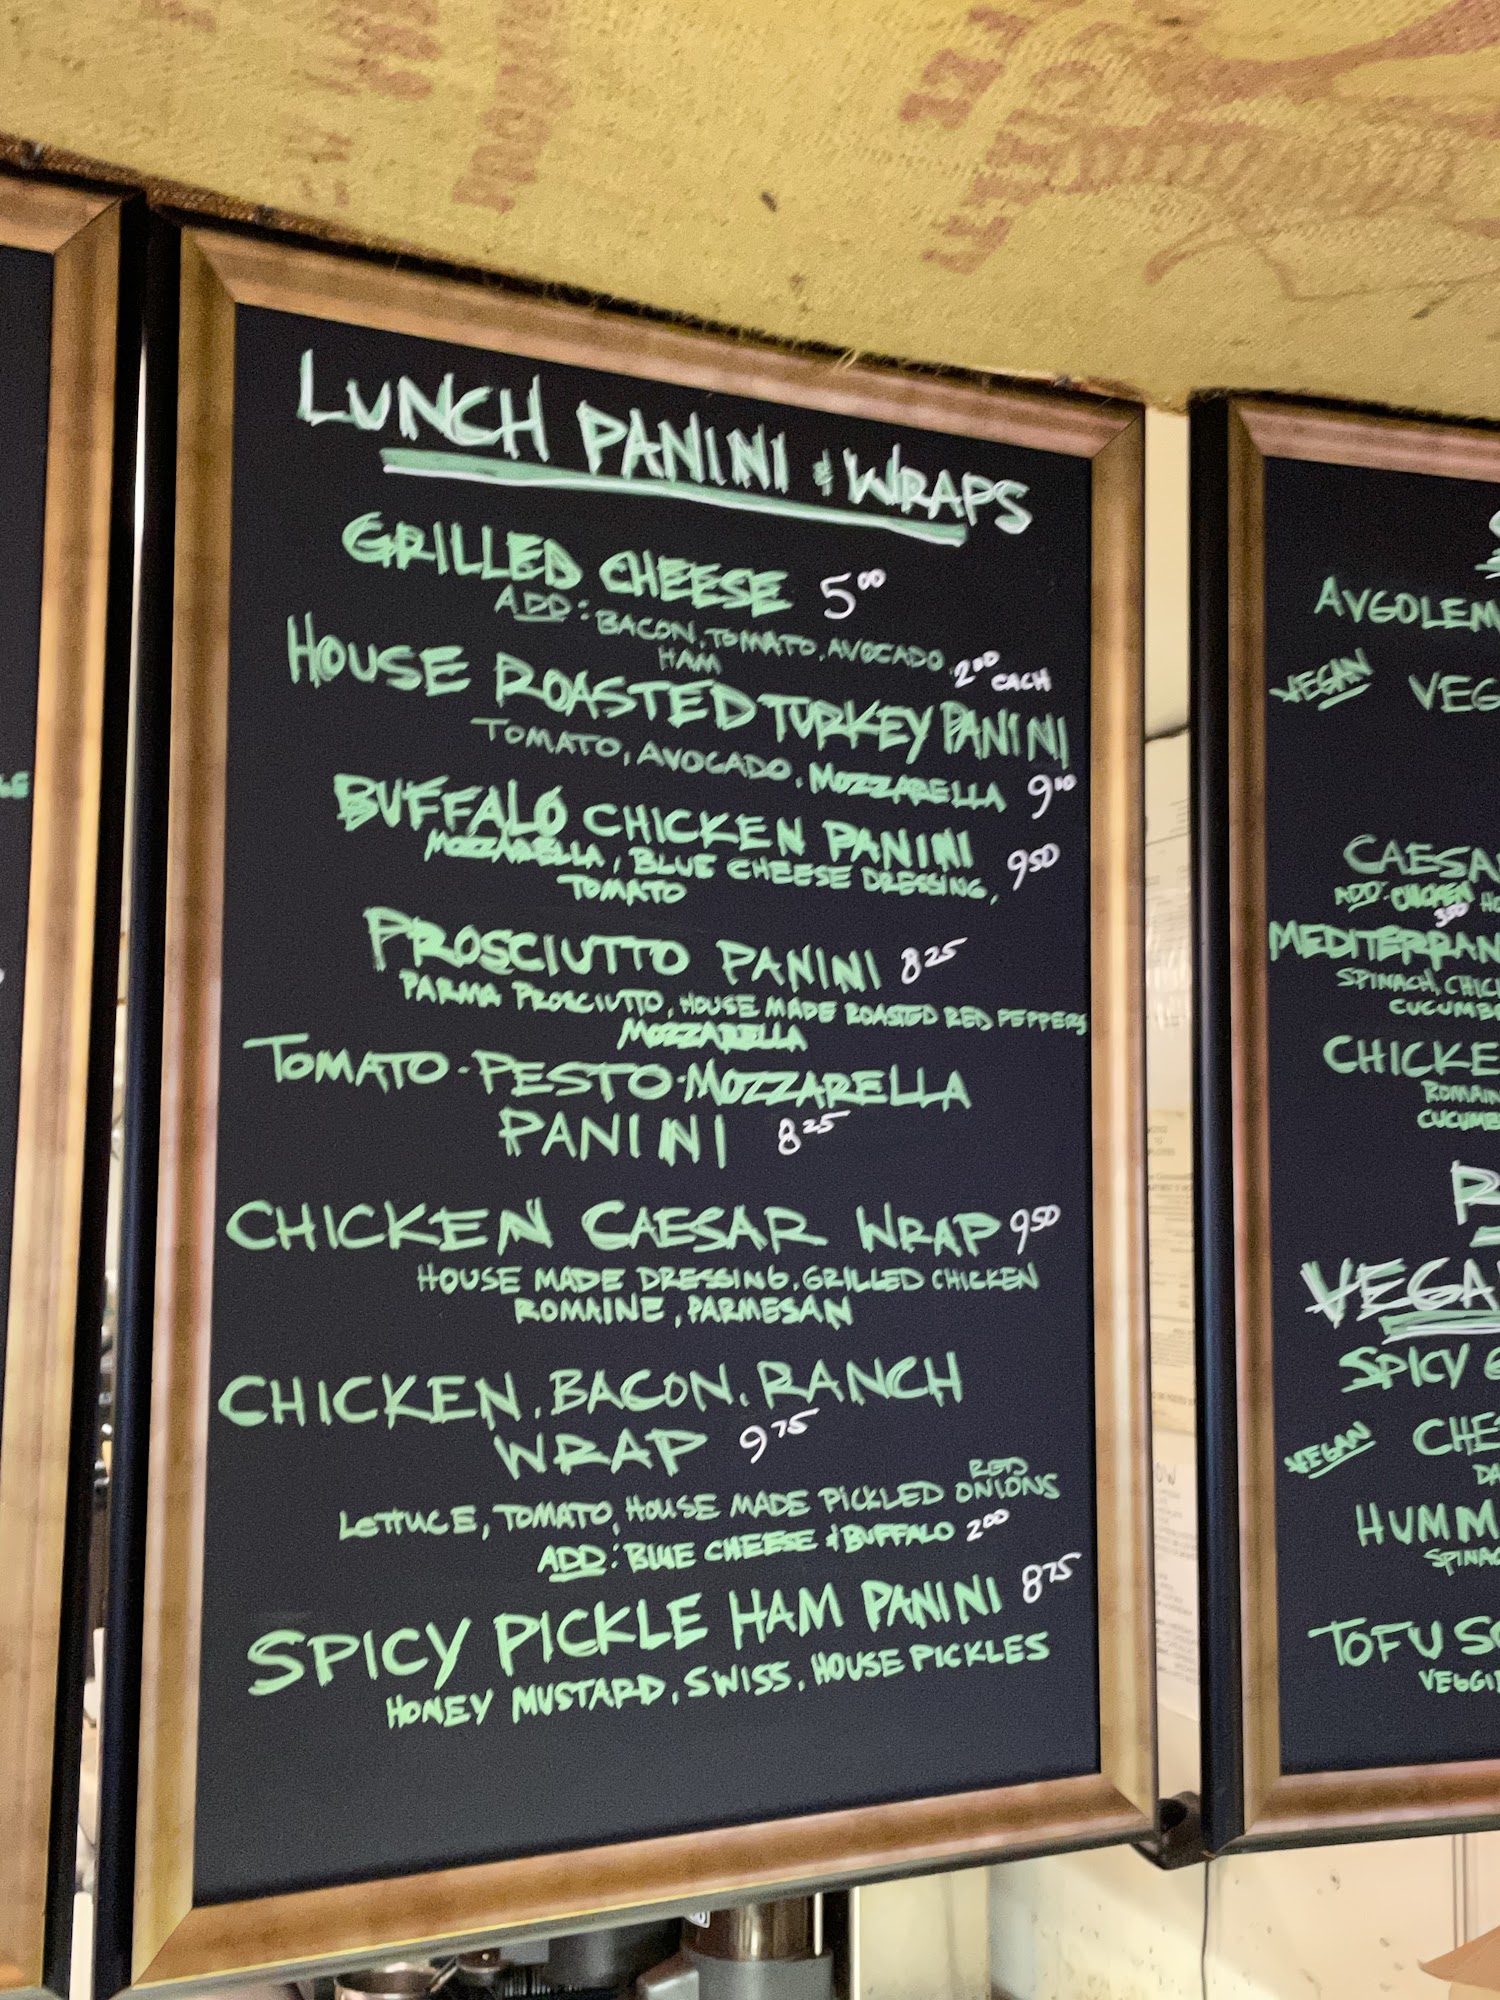 LUNCH PANINI & WRAPS
GRILLED CHEESE 5.00
ADD: BACON, TOMATO, AVOCADO,
HAM 2.00 EACH
HOUSE ROASTED TURKEY PANINI
TOMATO, AVOCADO, MOZZARELLA
BUFFALO CHICKEN PANINI
MOZZARELLA, BLUE CHEESE DRESSING, 9.50
TOMATO
PROSCIUTTO PANINI 8.25
PARMA PROSCIUTTO, HOUSE MADE ROASTED RED PEPPERS
MOZZARELLA
TOMATO-PESTO-MOZZARELLA
PANINI 8.25
CHICKEN CAESAR WRAP 9.50
HOUSE MADE DRESSING, GRILLED CHICKEN
ROMAINE, PARMESAN
CHICKEN, BACON, RANCH
WRAP 9.75
LETTUCE, TOMATO, HOUSE MADE PICKLED RED ONIONS
ADD: BLUE CHEESE & BUFFALO 2.00
SPICY PICKLE HAM PANINI 8.75
HONEY MUSTARD, SWISS, HOUSE PICKLES
AVGOLEM
VEGAN VEG
CAESA
ADD: CHICKEN
3.50
MEDITERRAN
SPINACH, CHIC
CUCUMBE
CHICKE
ROMAIN
CUCUMBE
VEGA
SPICY
VEGAN CHE
DA
HUMM
SPINAC
TOFU SC
VEGGI